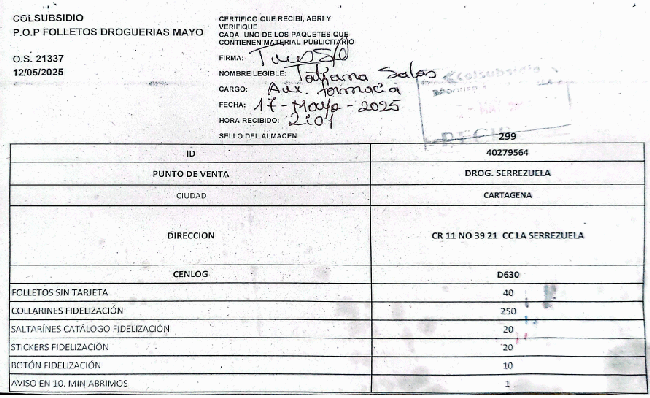 COLSUBSIDIO
P.O.P FOLLETOS DROGUERIAS MAYO
O.S. 21337
12/05/2025
CERTIFICO QUE RECIBI, ABRI Y
VERIFIQUE
CADA UNO DE LOS PAQUETES QUE
CONTIENEN MATERIAL PUBLICITARIO
FIRMA:
NOMBRE LEGIBLE: Tatiana Salas
CARGO: Aux. farmacia
FECHA: 17-Mayo-2025
HORA RECIBIDO:
SELLO DEL ALMACEN
Colsubsidio
299
ID 40279564
PUNTO DE VENTA DROG. SERREZUELA
CIUDAD CARTAGENA
DIRECCION CR 11 NO 39 21 CC LA SERREZUELA
CENLOG D630
FOLLETOS SIN TARJETA 40
COLLARINES FIDELIZACIÓN 250
SALTARÍNES CATÁLOGO FIDELIZACIÓN 20
STICKERS FIDELIZACIÓN 20
BOTÓN FIDELIZACIÓN 10
AVISO EN 10. MIN ABRIMOS 1